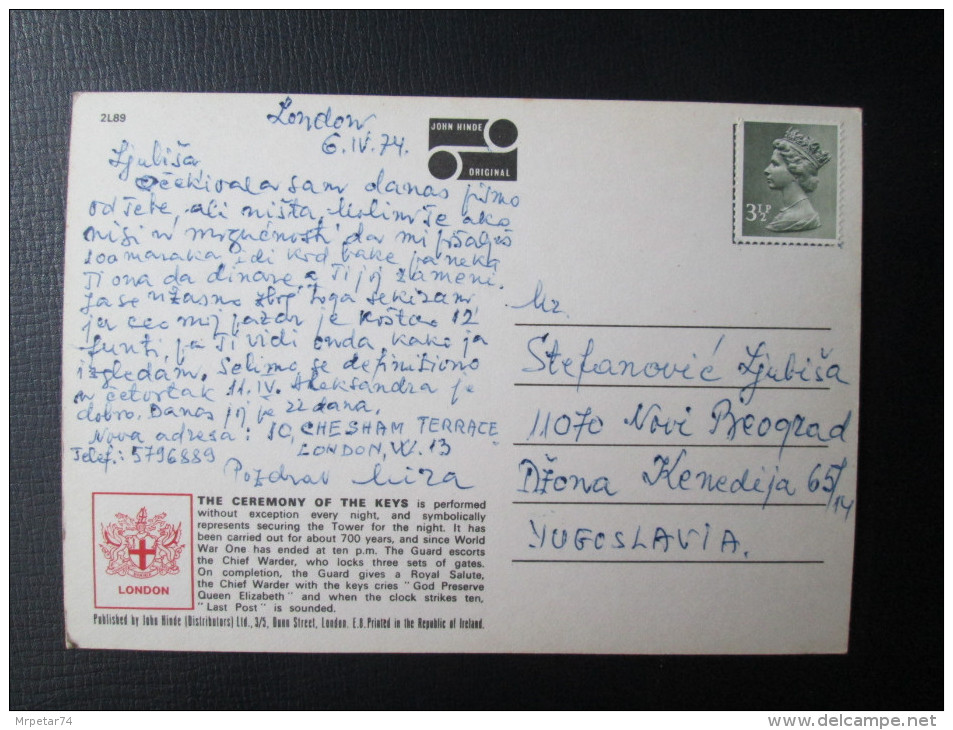 2L89
London
6.IV.74.
JOHN HINDE
ORIGINAL
3½P
Ljubiša,
Očekivala sam danas pismo
od tebe, ali ništa. Molim te ako
nisi u mogućnosti da mi pošalješ
100 maraka idi kod bake pa neka
Ti ona da dinare, a Ti joj zameni.
Ja se užasno zbog toga sekiram
jer ceo moj pazar je košta. 12
funti, pa Ti vidi onda kako ja
izgledam. Selimo se definitivno
u četvrtak 11.IV. Aleksandra je
dobro. Danas joj je 22 dana.
Nova adresa: 10, CHESHAM TERRACE
LONDON, W. 13
Telef.: 5796889
Pozdrav Mira
Mr.
Stefanović Ljubiša
11070 Novi Beograd
Džona Kenedija 65/14
YUGOSLAVIA.
THE CEREMONY OF THE KEYS is performed
without exception every night, and symbolically
represents securing the Tower for the night. It has
been carried out for about 700 years, and since World
War One has ended at ten p.m. The Guard escorts
the Chief Warder, who locks three sets of gates.
On completion, the Guard gives a Royal Salute,
the Chief Warder with the keys cries "God Preserve
Queen Elizabeth" and when the clock strikes ten,
"Last Post" is sounded.
LONDON
Published by John Hinde (Distributors) Ltd., 3/5, Dunn Street, London. E.8. Printed in the Republic of Ireland.
Mrpetar74
delcampe.net